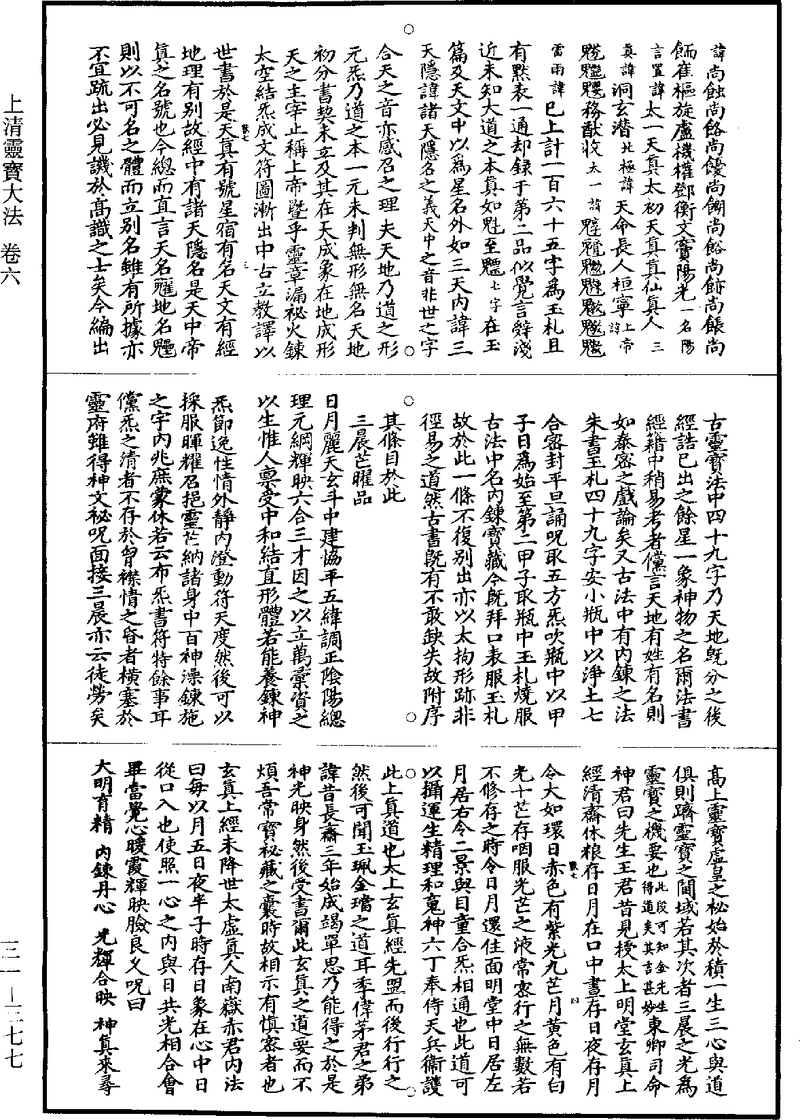 上清靈寶大法 卷六
三一—二七七
諱尚蝕尚餎尚優尚餬尚餎尚餰尚餦尚
餙崔樞旋盧機權鄧衡文竇陽光一名陽
言置諱太一天真太初天真真仙真人三
真諱洞玄潛北極諱天命長人桓寧上帝諱
務猷收太一諱
雷雨諱巳上計一百六十五字為玉札且
有黙表一通却録于第二品似覺言辤淺
近未知大道之本真如魁至魒七字在玉
篇及天文中以為星名外如三天內諱三
天隱諱諸天隱名之義天中之音非世之字
合天之音亦感召之理夫天地乃道之形
元炁乃道之本一元未判無形無名天地
初分書契未立及其在天成象在地成形
天之主宰止稱上帝暨乎靈章漏祕火鍊
太空結炁成文符圖漸出中古立教譯以
世書於是天真有號星宿有名天文有經
地理有別故經中有諸天隱名是天中帝
真之名號也今總而直言天名䨴地名
則以不可名之體而立別名雖有所據亦
不宜疏出必見譏於高識之士矣今編出
古靈寶法中四十九字乃天地既分之後
經誥已出之餘星一象神物之名爾法書
經籍中稍易考者儻言天地有姓有名則
如秦宓之戲論矣又古法中有內鍊之法
朱書玉札四十九字安小瓶中以淨土七
合密封平旦誦呪取五方炁吹瓶中以甲
子日為始至第二甲子取瓶中玉札燒服
古法中名內鍊寶藏今既拜口表服玉札
故於此一條不復別出亦以太拘形跡非
徑易之道然古書既有不敢缺失故附序
其條目於此
三晨芒曜品
日月麗天玄斗中建協平五緯調正陰陽總
理元綱輝映六合三才因之以立萬彙資之
以生惟人禀受中和結直形體若能養鍊神
炁節逸性情外靜內澄動符天度然後可以
採服暉耀召挹靈芒納諸身中百神澡鍊施
之宇內兆庶蒙休若云布炁書符特餘事耳
儻炁之清者不存於胷襟情之昏者橫塞於
靈府雖得神文祕呪面接三晨亦云徒勞矣
高上靈寶虛皇之祕始於積一生三心與道
俱則躋靈寶之閫域若其次者三晨之光為
靈寶之機要也此段可知金先生得道矣其言甚妙東卿司命
神君曰先生王君昔見授太上明堂玄真上
經清齋休粮存日月在口中晝存日夜存月
令大如環日赤色有紫光九芒月黃色有白
光十芒存咽服光芒之液常密行之無數若
不修存之時令日月還住面明堂中日居左
月居右令二景與目童合炁相通也此道可
以攝運生精理和䰟神六丁奉侍天兵衞護
此上真道也太上玄真經先盟而後行行之
然後可聞玉珮金璫之道耳季偉茅君之弟
諱昔長齋三年始成竭單思乃能得之於是
神光映身然後受書彌此玄真之道要而不
煩吾常寶祕藏之囊時故相示有慎密者也
玄真上經未降世太虛真人南嶽赤君內法
曰每以月五日夜半子時存日象在心中日
從口入也使照一心之內與日共光相合會
畢當覺心暖霞輝映臉良久呪曰
大明育精 內鍊丹心 光輝合映 神真來尋